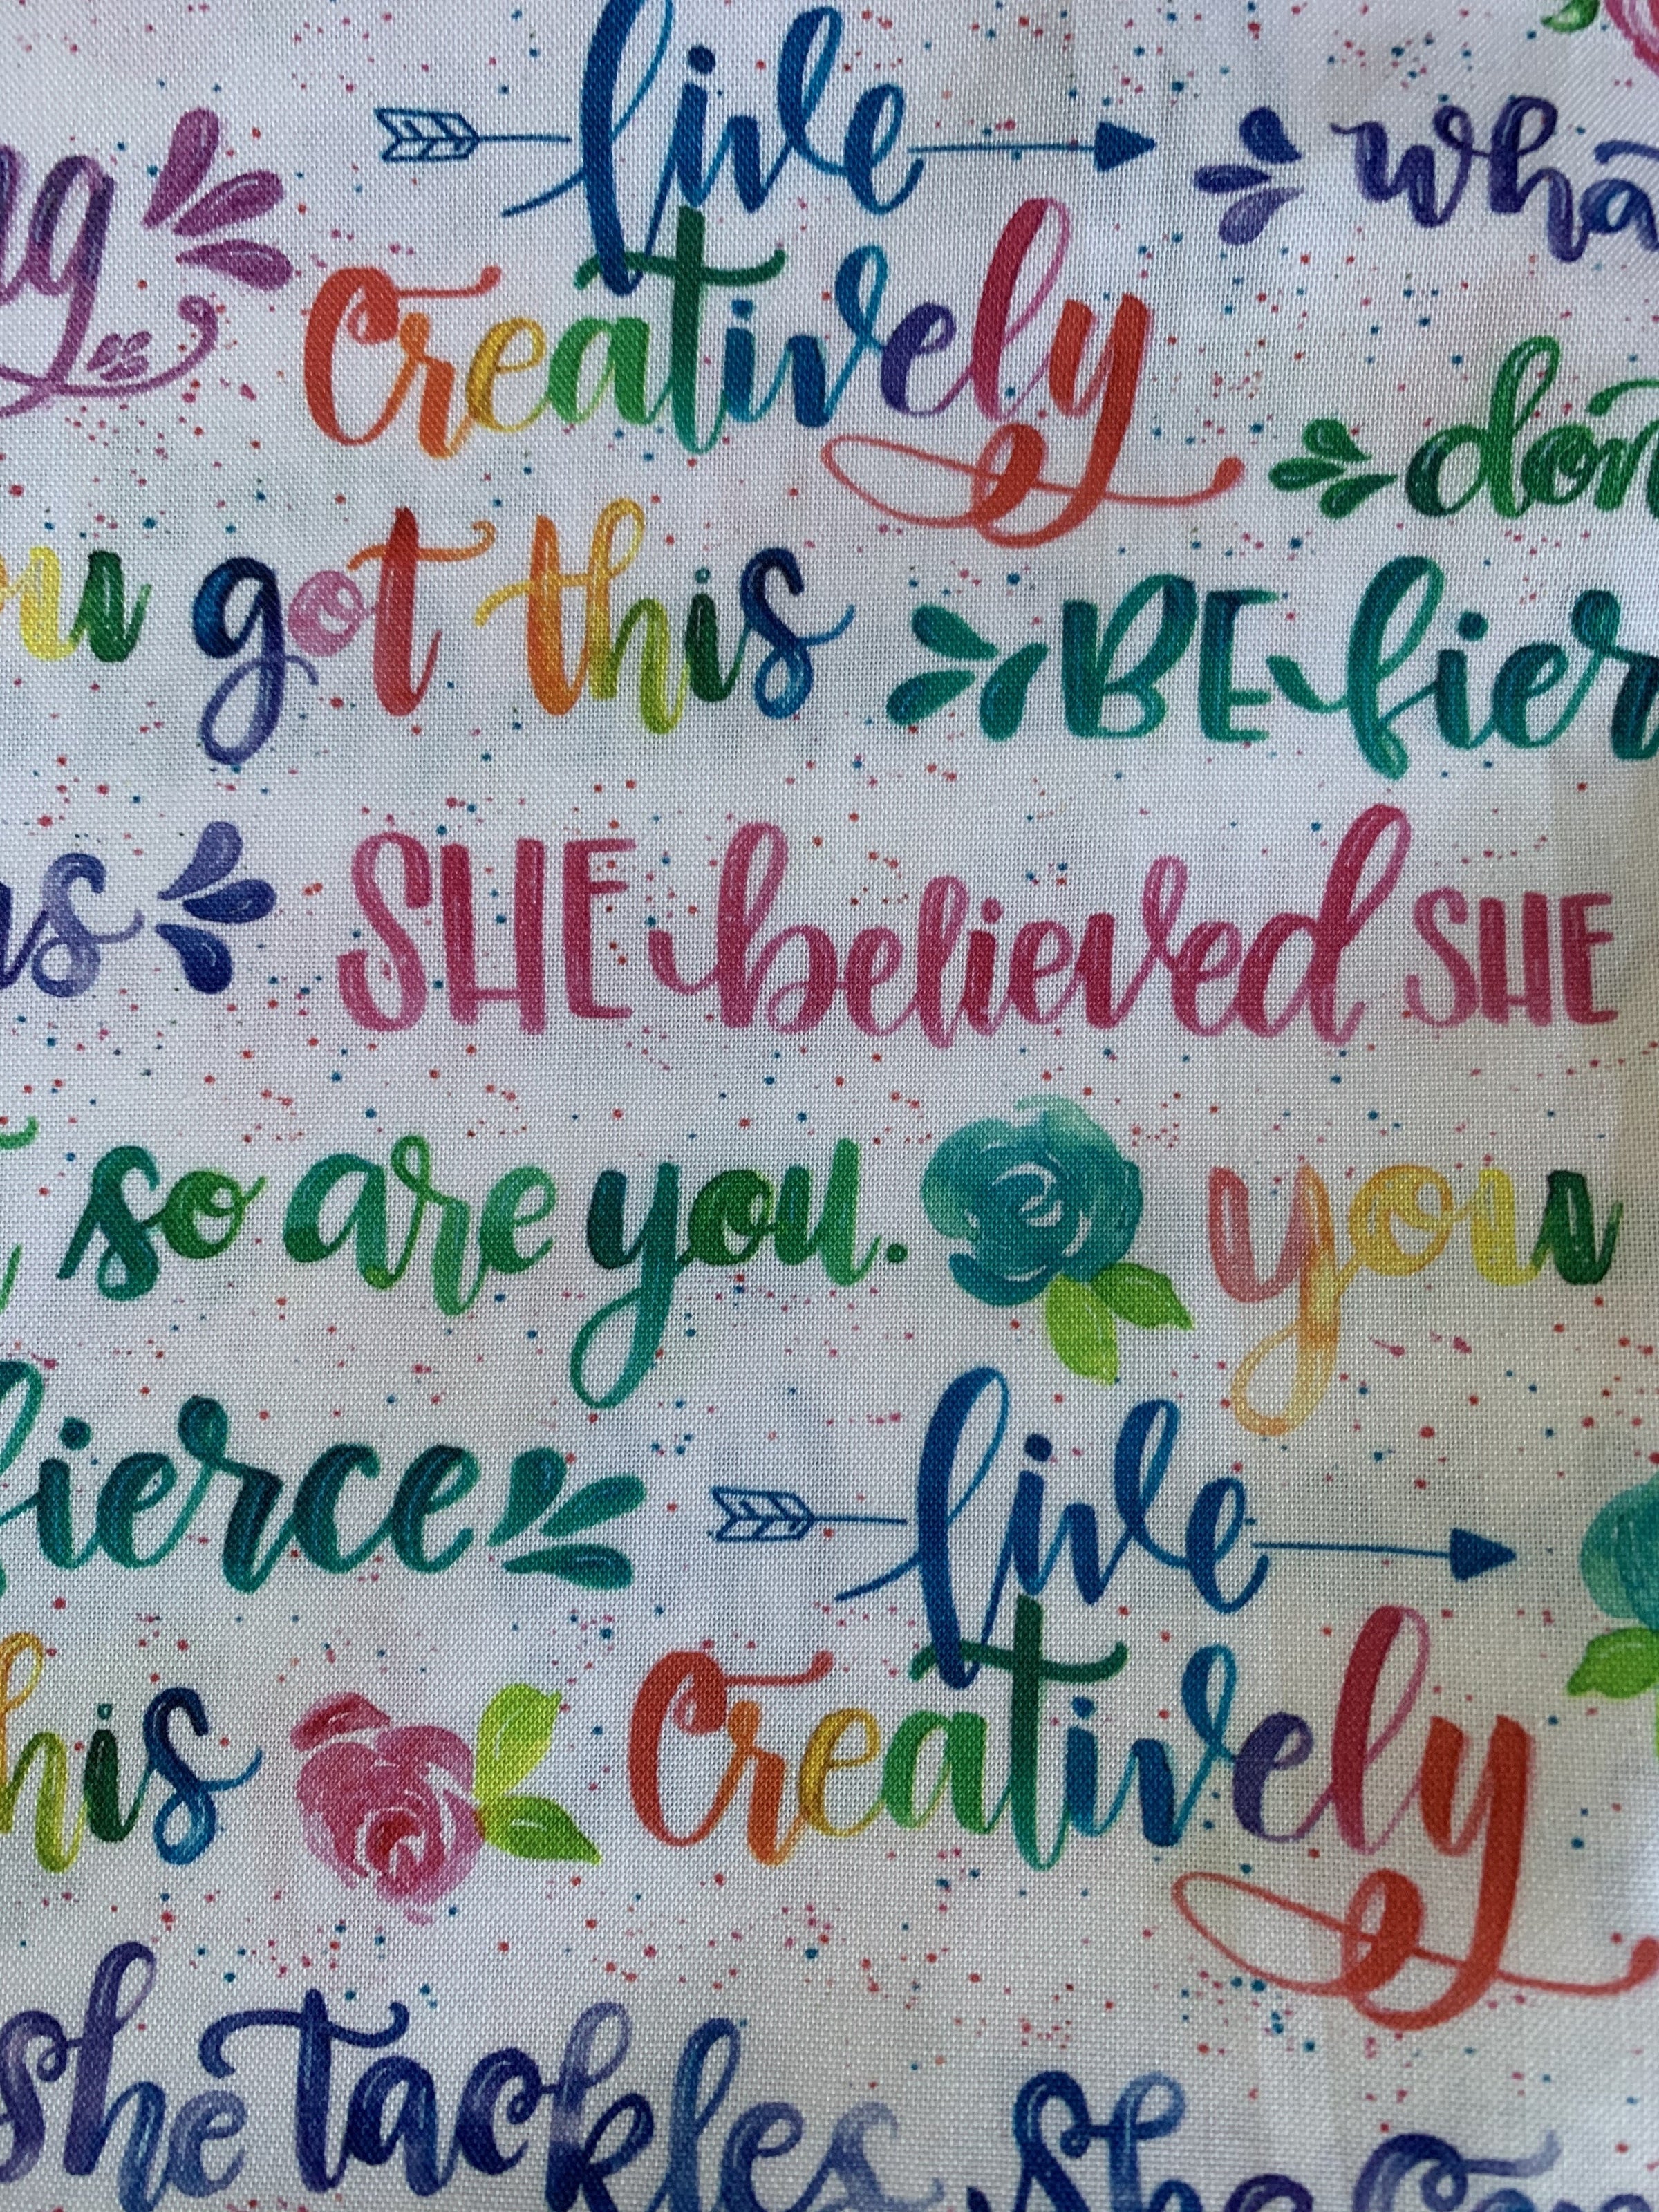 live wha
creatively
don
you got this BE fier
SHE believed SHE
so are you. you
fierce live
this creatively
she tackles she